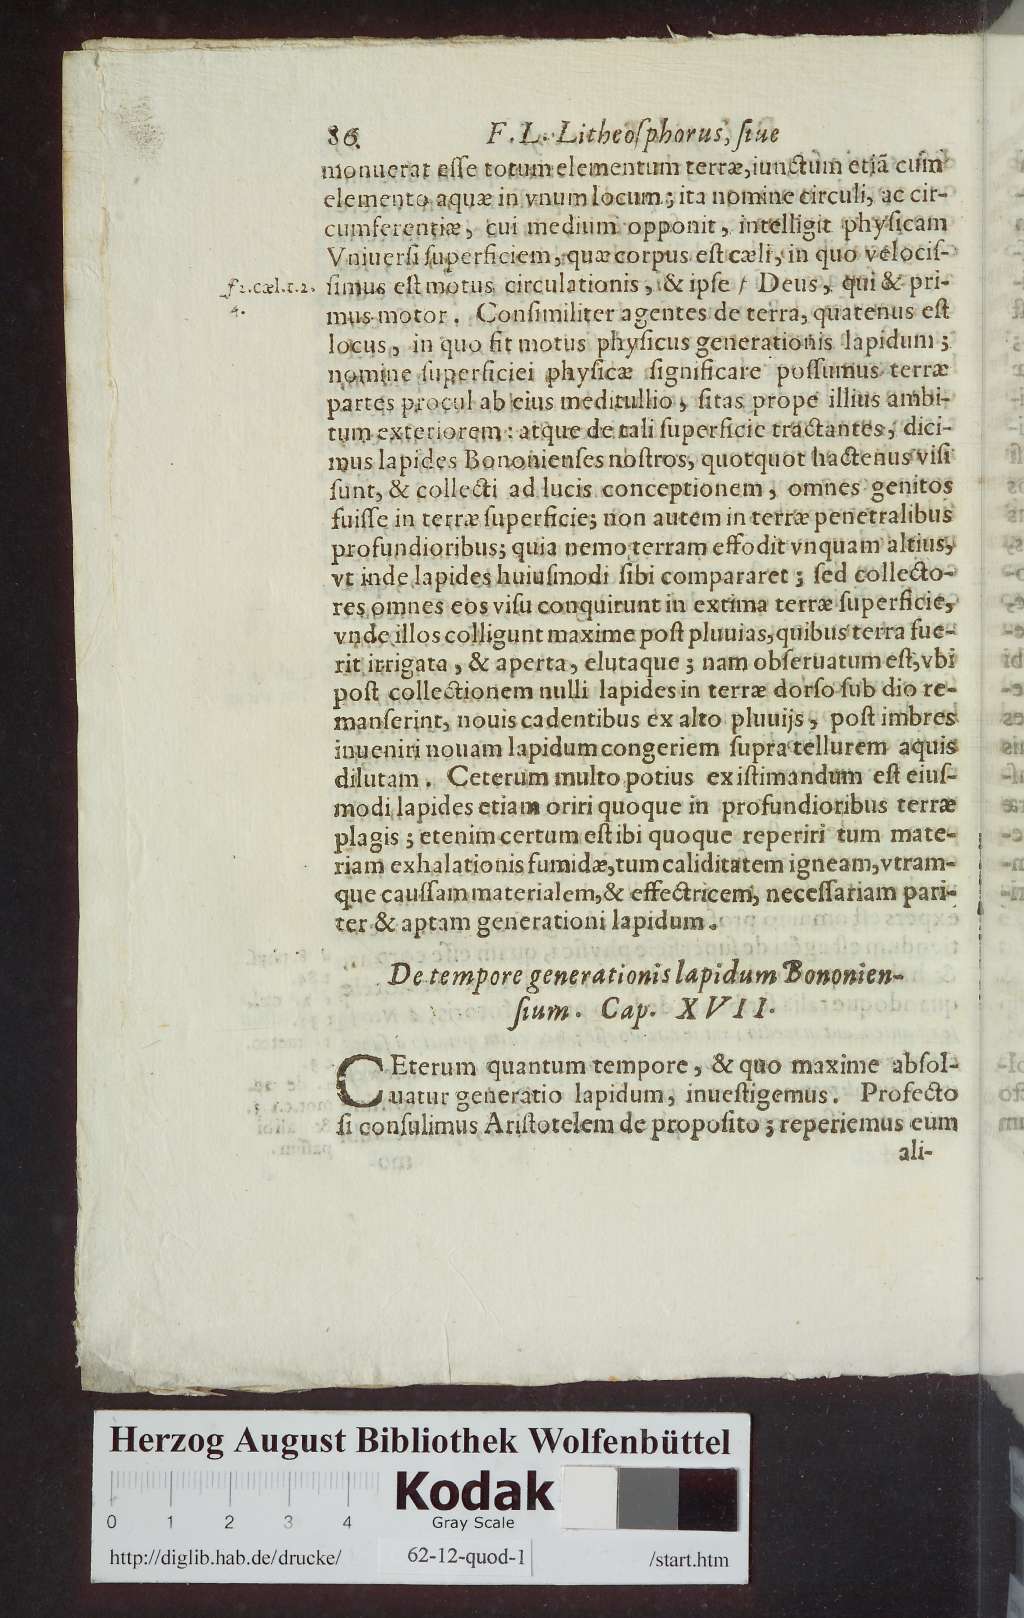 86. F. L. Litheoſphorus, ſiue
monuerat eſſe totum elementum terræ, iunctum etiā cum
elemento aquæ in vnum locum; ita nomine circuli, ac cir-
cumferentiæ, cui medium opponit, intelligit phyſicam
Vniuerſi ſuperficiem, quæ corpus eſt cæli, in quo velociſ-
f 2. cæl. t. 2. ſimus eſt motus circulationis, & ipſe f Deus, qui & pri-
4.
mus motor. Conſimiliter agentes de terra, quatenus eſt
locus, in quo fit motus phyſicus generationis lapidum;
nomine ſuperficiei phyſicæ ſignificare poſſumus terræ
partes procul ab eius meditullio, ſitas prope illius ambi-
tum exteriorem: atque de tali ſuperficie tractantes, dici-
mus lapides Bononienſes noſtros, quotquot hactenus viſi
ſunt, & collecti ad lucis conceptionem, omnes genitos
fuiſſe in terræ ſuperficie; non autem in terræ penetralibus
profundioribus; quia nemo terram effodit vnquam altius,
vt inde lapides huiuſmodi ſibi compararet; ſed collecto-
res omnes eos viſu conquirunt in extima terræ ſuperficie,
vnde illos colligunt maxime poſt pluuias, quibus terra fue-
rit irrigata, & aperta, elutaque; nam obſeruatum eſt, vbi
poſt collectionem nulli lapides in terræ dorſo ſub dio re-
manſerint, nouis cadentibus ex alto pluuijs, poſt imbres
inueniri nouam lapidum congeriem ſupra tellurem aquis
dilutam. Ceterum multo potius exiſtimandum eſt eiuſ-
modi lapides etiam oriri quoque in profundioribus terræ
plagis; etenim certum eſt ibi quoque reperiri tum mate-
riam exhalationis fumidæ, tum caliditatem igneam, vtram-
que cauſſam materialem, & effectricem, neceſſariam pari-
ter & aptam generationi lapidum.
De tempore generationis lapidum Bononien-
ſium. Cap. XVII.
CEterum quantum tempore, & quo maxime abſol-
uatur generatio lapidum, inueſtigemus. Profecto
ſi conſulimus Ariſtotelem de propoſito; reperiemus eum
ali-
Herzog August Bibliothek Wolfenbüttel
Kodak
Gray Scale
0 1 2 3 4
http://diglib.hab.de/drucke/ 62-12-quod-1 /start.htm